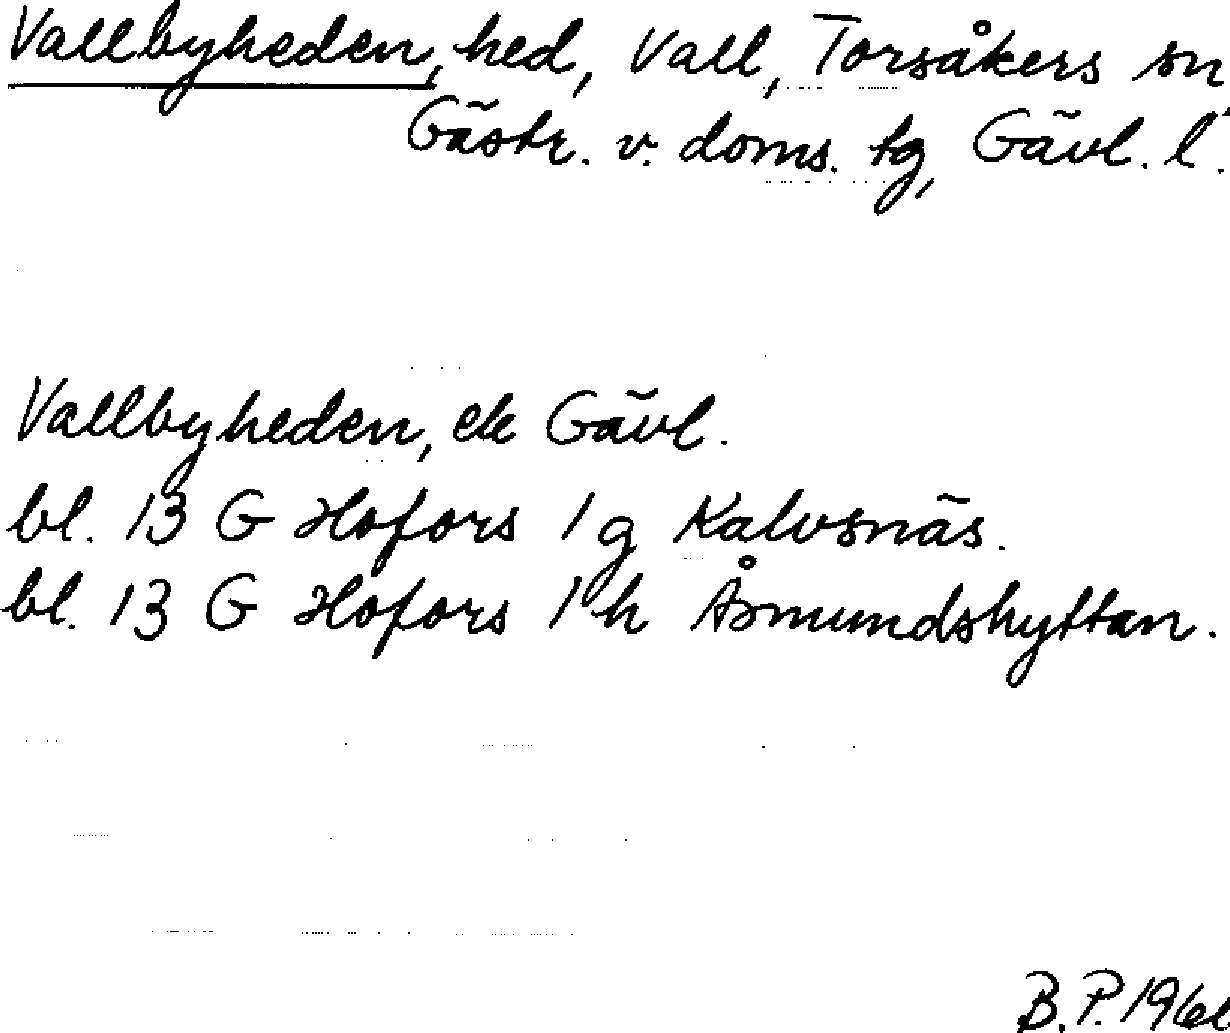 Vallbyheden, hed, Vall, Torsåkers sn
Gästr. v. doms. tg, Gävl. l.
Vallbyheden, ek Gävl.
bl. 13 G Hofors 1 g Kalvsnäs.
bl. 13 G Hofors 1 h Åsmundshyttan.
B.P.